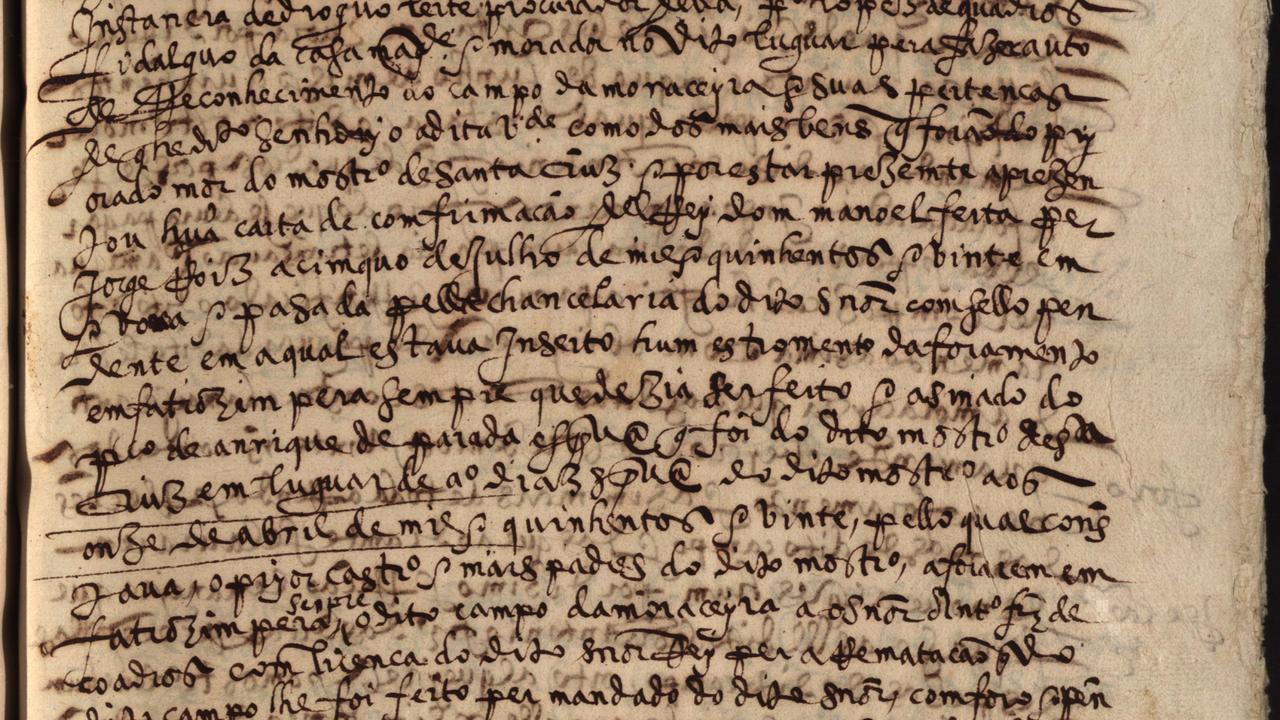 Instancia de dioguo leite procurador della, pº lopez de quadros
fidalguo da casa ma de e morador no dito luguar pera fazer auto
de Reconhecimento do campo da moraceyra e suas pertencas
de que he dito o aditar de como dos mais bens q forão do pry
orado mor do mostrº de santa Cruz e por estar prezemte aprezen
tou hũa carta de comfirmacão del Rey dom manoel feita per
Jorge Roiz a cimquo de Julho de mil e quinhentos e vinte em
e pasada pella chancelaria do dito snõr com sello pen
dente em a qual estaua Inserto hum estromento daforamento
emfatiozim pera sempre que dezia ser feito e asinado do
pro de anrique de parada q foi do dito mostrº de sta
Cruz em luguar de aº diaz do dito mostrº aos
onze de abril de mil e quinhentos e vinte, pello qual cons
taua, o pryor castrº e mais padres do dito mostrº, aforarem em
fatiozim pera sempre, o dito campo da moraceyra a o snõr Antº frz de
coadros com licenca do dito snõr Rey per a Rematacão q do
dito campo lhe foi feito per mandado do dito snõr, com foro e pen